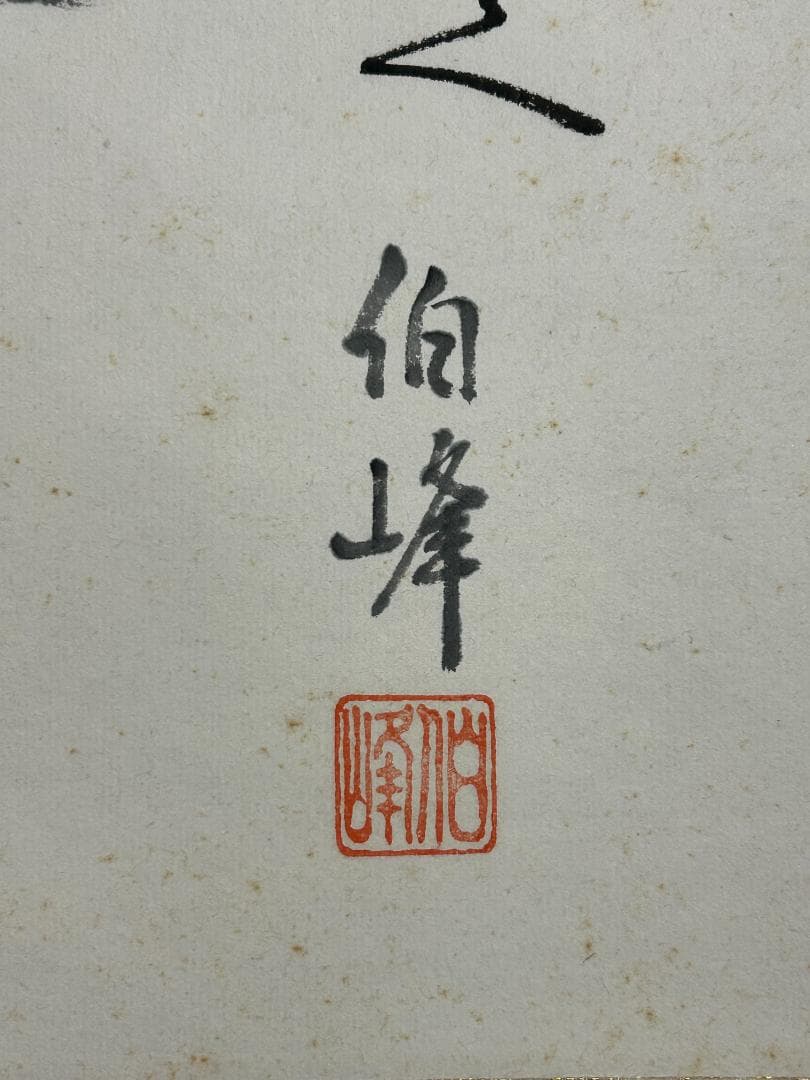 伯峰
伯峰